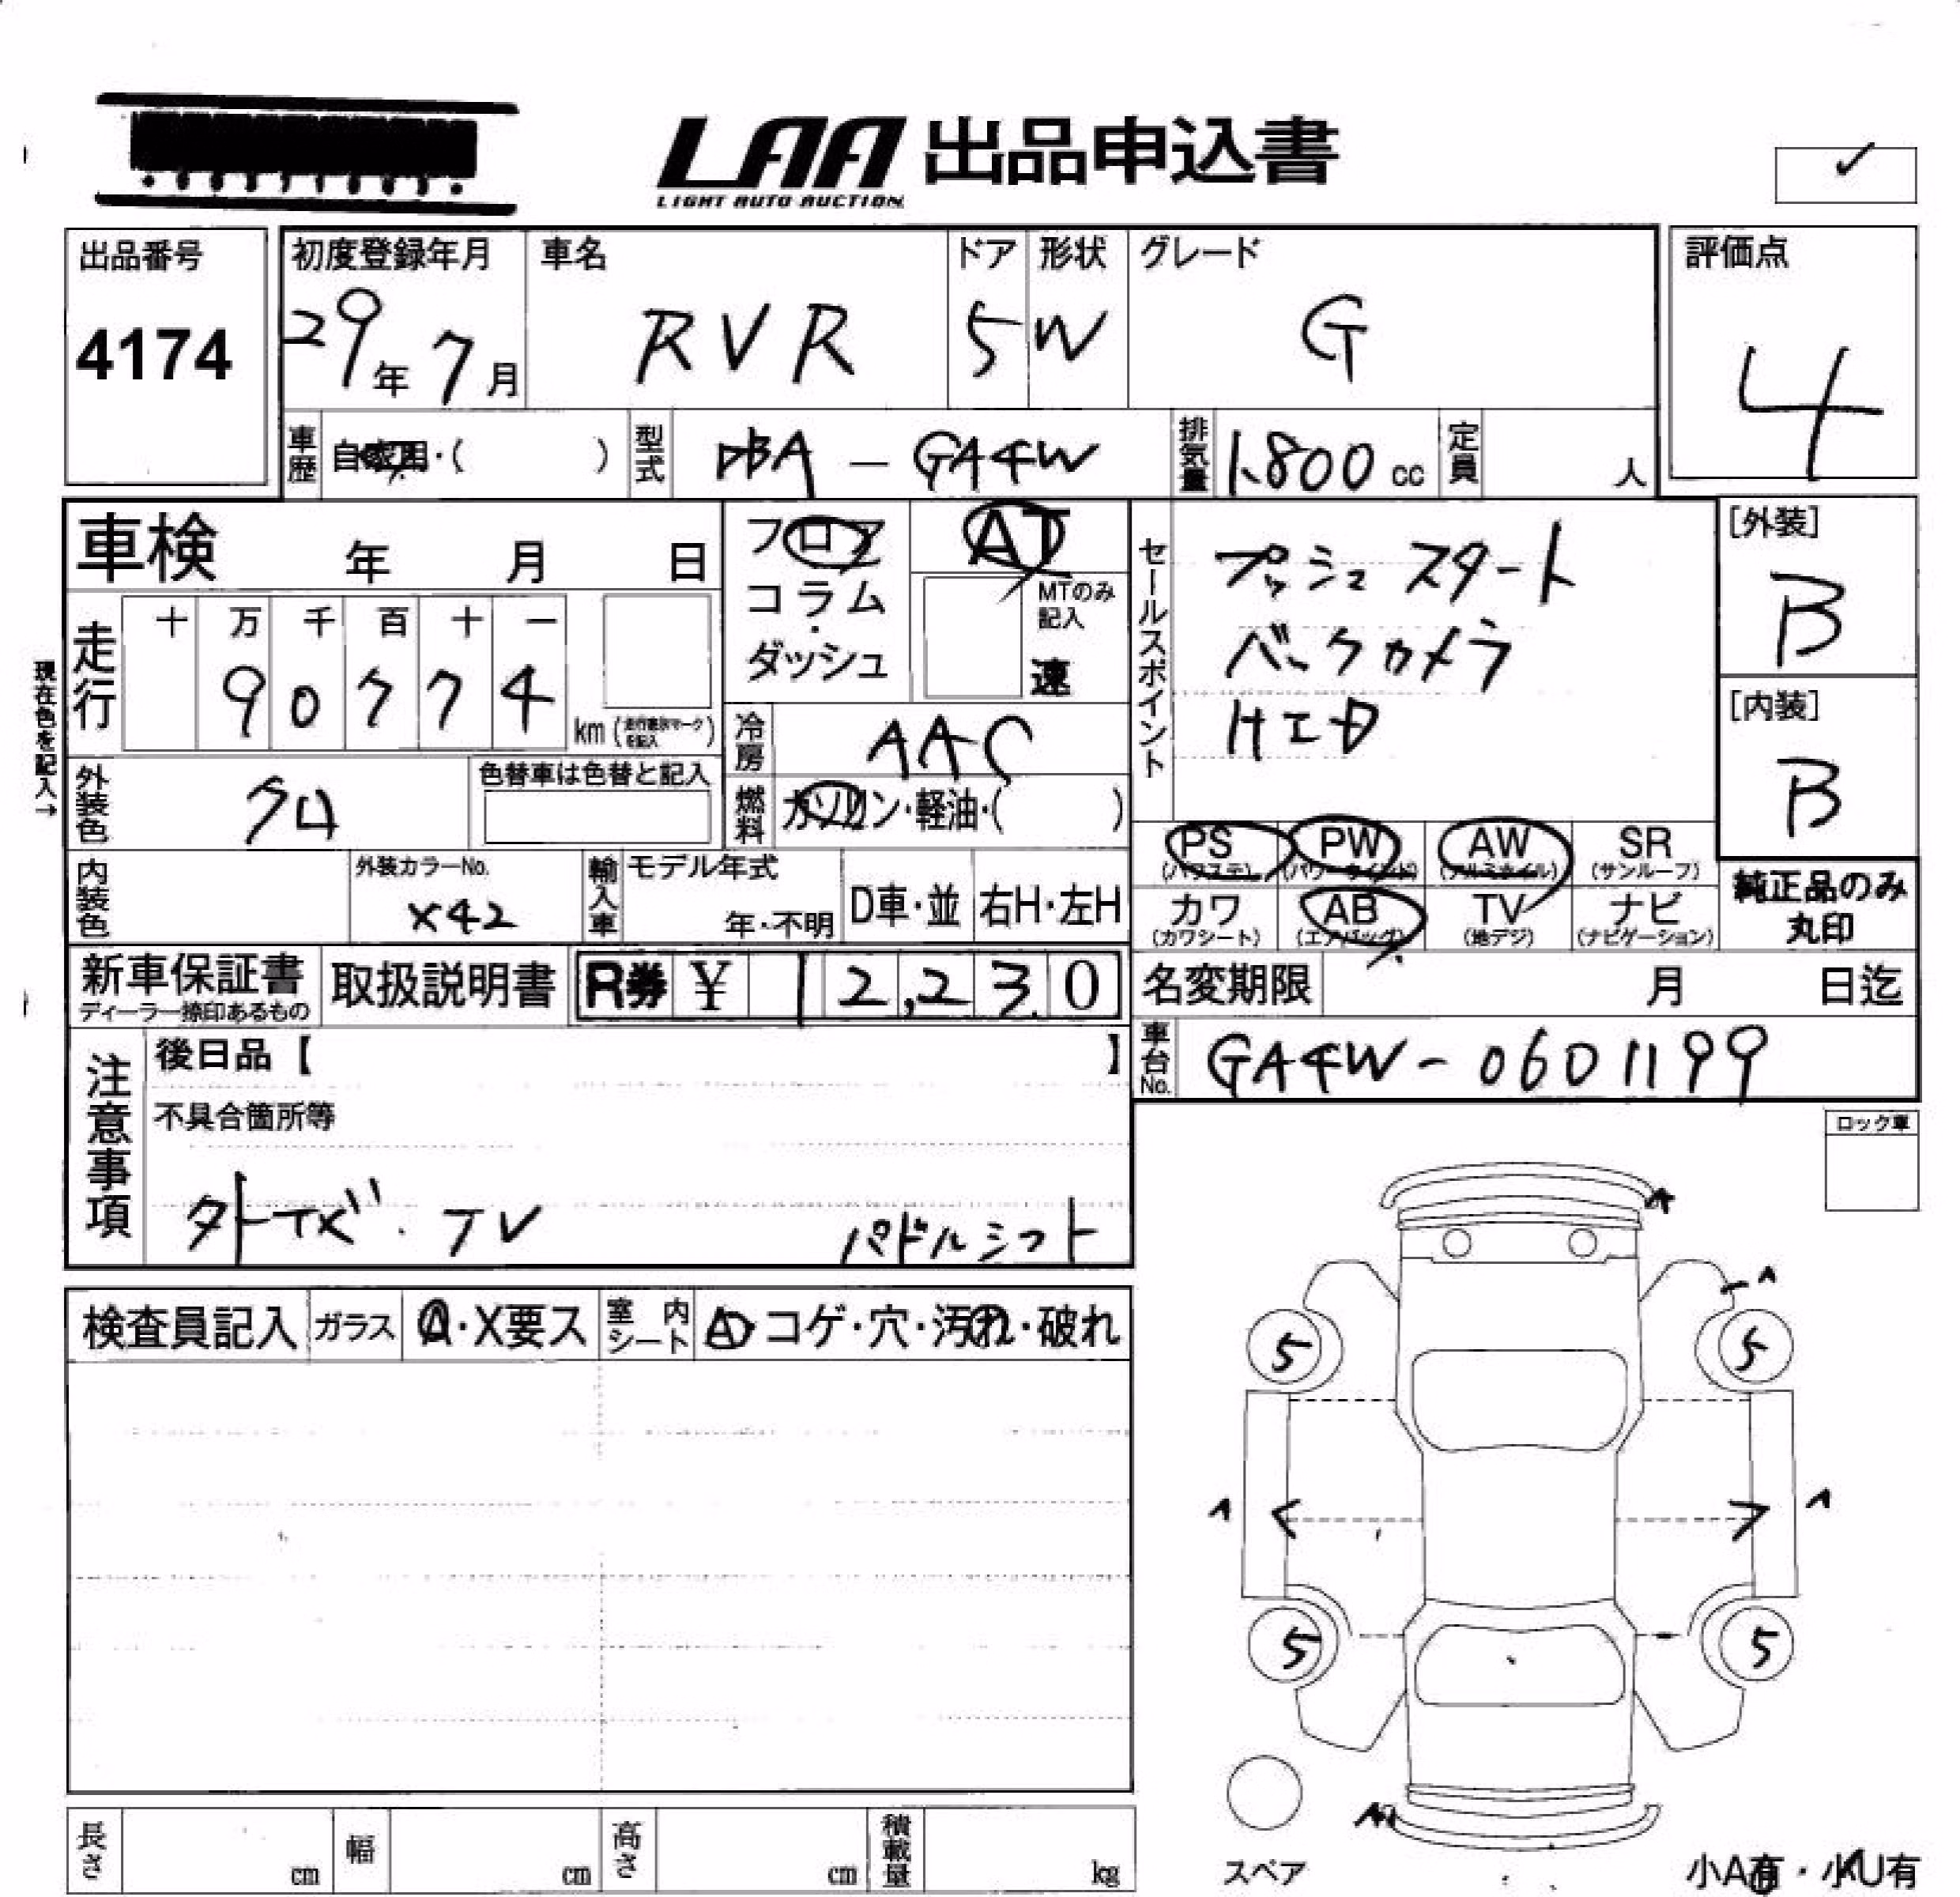 LAA 出品申込書
LIGHT AUTO AUCTION
✓
出品番号
4174
初度登録年月
29年 7月
車名
RVR
ドア
5
形状
W
グレード
G
評価点
4
車歴
自家用・( )
型式
DBA - GA4W
排気量
1,800 cc
定員
人
車検 年 月 日
フロア
コラム
ダッシュ
AT
MTのみ
記入
速
セールスポイント
プッシュスタート
バックカメラ
HID
[外装]
B
[内装]
B
現在色を記入→
走行
十 万 千 百 十 一
9 0 7 7 4
km (走行無別マークを記入)
冷房
AAC
外装色
クロ
色替車は色替と記入
燃料
ガソリン・軽油・( )
PS (パワステ)
PW (パワーウインド)
AW (アルミホイル)
SR (サンルーフ)
カワ (カワシート)
AB (エアバッグ)
TV (地デジ)
ナビ (ナビゲーション)
純正品のみ
丸印
内装色
外装カラーNo.
X42
輸入車
モデル年式
年・不明
D車・並
右H・左H
新車保証書
ディーラー捺印あるもの
取扱説明書
R券 ¥ 12,230
名変期限 月 日迄
車台No.
GA4W-0601199
注意事項
後日品【 】
不具合箇所等
外ナビ・TV パドルシフト
ロック車
検査員記入
ガラス
A・X要ス
室内シート
A・コゲ・穴・汚れ・破れ
A
A
5 5
A A
5 5
スペア
長さ cm
幅 cm
高さ cm
積載量 kg
小A有・小U有